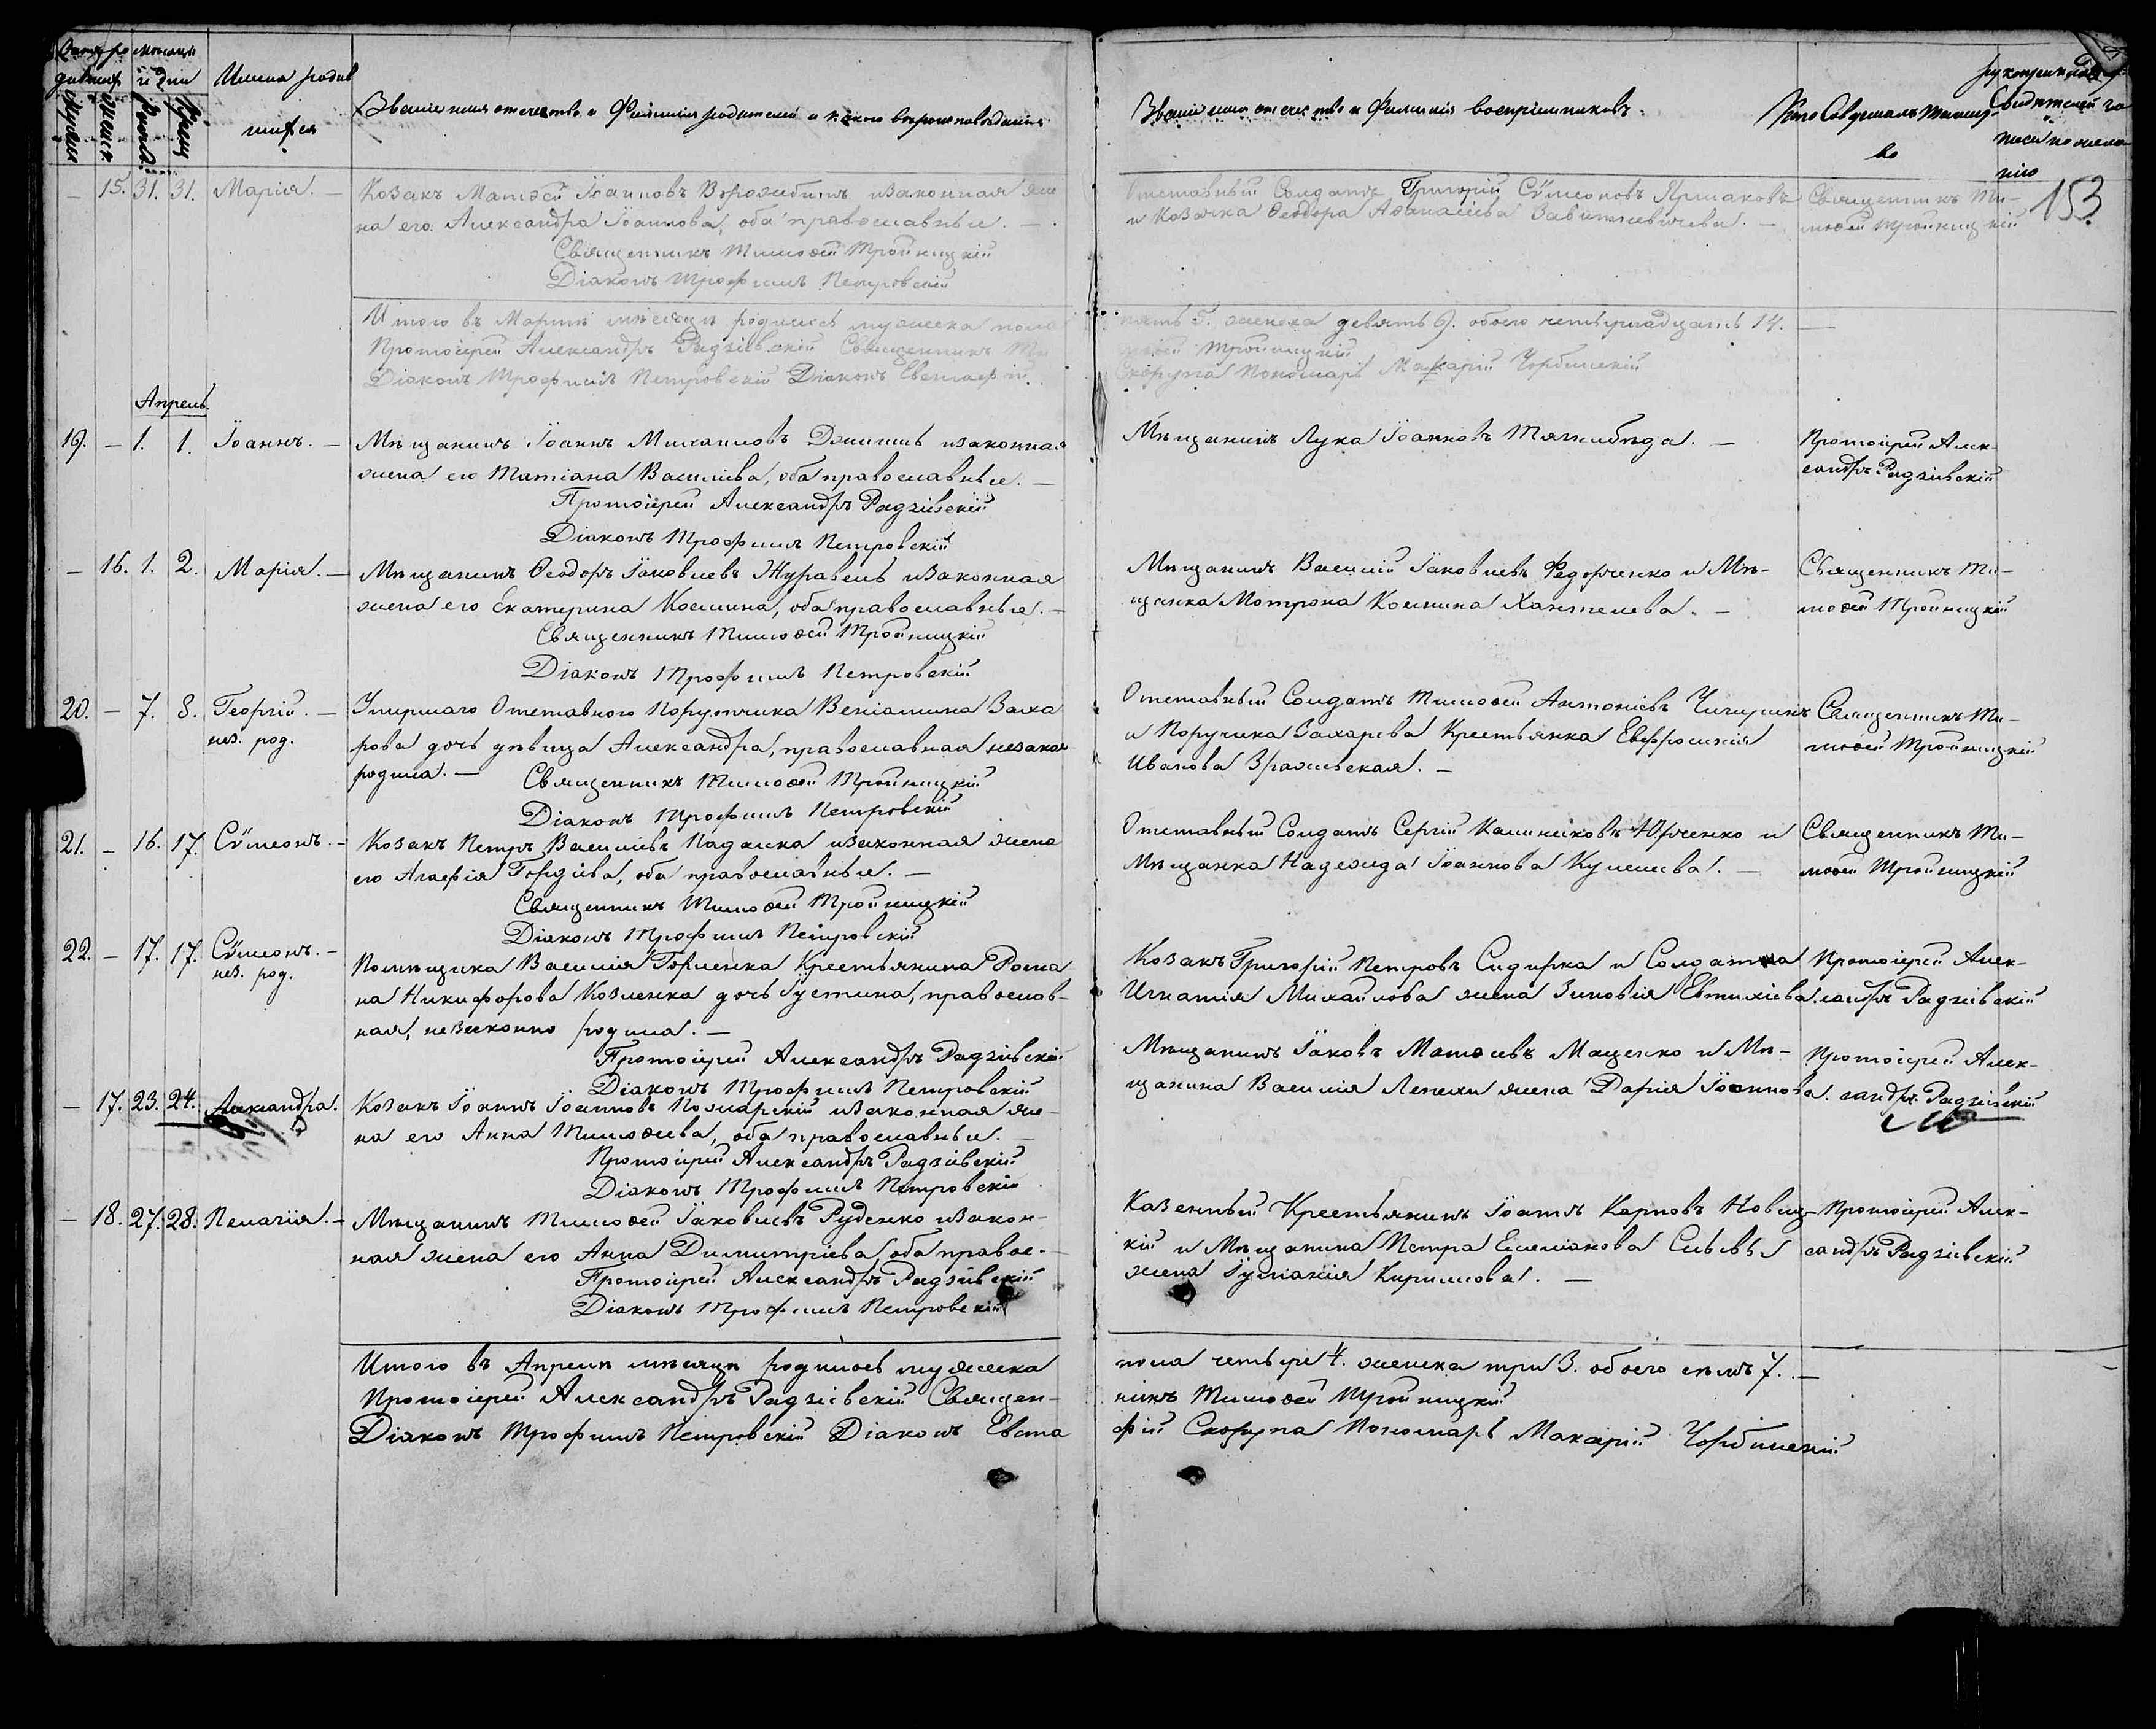 Имена родив
шихся
Званіе имя отечество и Фамилія родителей и какого вѣроисповѣданія
Званіе имя отечество и Фамилія воспріемниковъ.
Кто Совершалъ таинс-
во
153
15. 31. 31. Марія. —
Козакъ Матѳей Іоанновъ Ворожбитъ изаконная же
на его Александра Іоаннова, оба православные. —
Священникъ Тимоѳей Тройницкій
Діаконъ Трофимъ Петровскій
Отставный Солдатъ Григорій Сѵмеоновъ Ярмаковъ
и Козачка Ѳеодора Аѳанасіева
Священникъ Ти-
моѳей Тройницкій
Итого въ Мартѣ мѣсяцѣ родилось мужеска пола
пять 5. женска девять 9. обоего четырнадцать 14. —
Протоіерей Александръ Радзіевскій Священникъ Ти
моѳей Тройницкій
Діаконъ Трофимъ Петровскій Діаконъ Евстафій
Скорупа Пономарь Макарій Чорбинскій
Апрель.
19. — 1. 1. Іоаннъ. —
Мѣщанинъ Іоаннъ Михаиловъ изаконная
жена его Татіана Василіева, оба православные. —
Протоіерей Александръ Радзіевскій
Діаконъ Трофимъ Петровскій
Мѣщанинъ Лука Іоанновъ Тягнибѣда. —
Протоіерей Алек-
сандръ Радзіевскій
— 16. 1. 2. Марія. —
Мѣщанинъ Ѳеодоръ Іаковлевъ Журавель изаконная
жена его Екатерина Космина, оба православные. —
Священникъ Тимоѳей Тройницкій
Діаконъ Трофимъ Петровскій
Мѣщанинъ Василій Іаковлевъ Федорченко и Мѣ-
щанка Мотрона
Священникъ Ти-
моѳей Тройницкій
20. — 7. 8. Георгій. —
нез. род.
Умершаго Отставного Порутчика Веніамина Заха
рова дочь дѣвица Александра, православная незакон
родила. —
Священникъ Тимоѳей Тройницкій
Діаконъ Трофимъ Петровскій
Отставный Солдатъ Тимоѳей Антоніевъ
и Поручика Захарева Крестьянка Евфросинія
Иванова
Священникъ Ти-
моѳей Тройницкій
21. — 16. 17. Сѵмеонъ. —
Козакъ Петръ Василіевъ Падалка изаконная жена
его Агафія Гордіева, оба православные. —
Священникъ Тимоѳей Тройницкій
Діаконъ Трофимъ Петровскій
Отставный Солдатъ Сергій Калиниковъ Юрченко и
Мѣщанка Надежда Іоаннова
Священникъ Ти-
моѳей Тройницкій
22. — 17. 17. Сѵмеонъ. —
нез. род.
Помѣщика Василія Горленка Крестьянина Рома
на Никифорова Козленка дочь Іустина, православ-
ная, незаконно родила. —
Протоіерей Александръ Радзіевскій
Діаконъ Трофимъ Петровскій
Козакъ Григорій Петровъ Сидорка и Солдатка
Игнатія Михайлова жена Зиновія Евтихіева.
Протоіерей Алек-
сандръ Радзіевскій
— 17. 23. 24. Александра.
Козакъ Іоаннъ Іоанновъ Пожарскій изаконная же-
на его Анна Тимоѳеева, оба православные.
Протоіерей Александръ Радзіевскій
Діаконъ Трофимъ Петровскій
Мѣщанинъ Іаковъ Матѳеевъ Маценко и Мѣ-
щанина Василія жена Дарія Іоаннова.
Протоіерей Алек-
сандръ Радзіевскій
— 18. 27. 28. Пелагія. —
Мѣщанинъ Тимоѳей Іаковлевъ Руденко изакон-
ная жена его Анна Димитріева, оба правос-
Протоіерей Александръ Радзіевскій
Діаконъ Трофимъ Петровскій
Казенный Крестьянинъ Іоаннъ Карповъ Новиц-
кій и Мѣщанина Петра
жена Іуліанія Кириллова. —
Протоіерей Алек-
сандръ Радзіевскій
Итого въ Апрелѣ мѣсяцѣ родилось мужеска
пола четыре 4. женска три 3. обоего семь 7. —
Протоіерей Александръ Радзіевскій Священ-
никъ Тимоѳей Тройницкій
Діаконъ Трофимъ Петровскій Діаконъ Евста
фій Скорупа Пономарь Макарій Чорбинскій